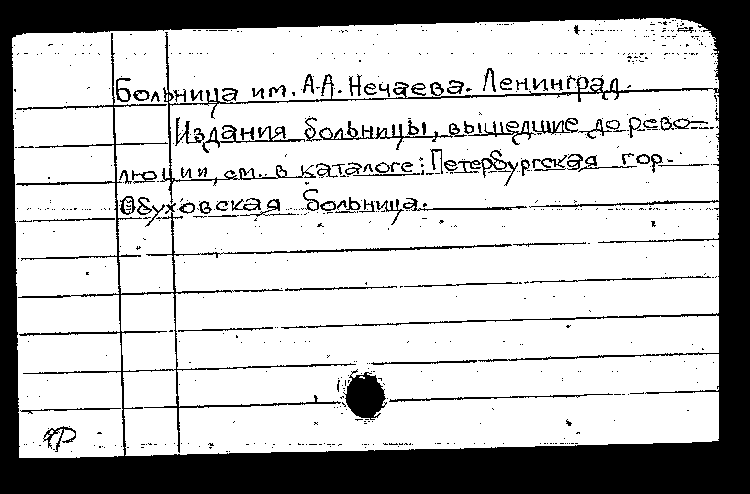 Больница им. А.А. Нечаева. Ленинград.
Издания больницы, вышедшие до рево-
люции, см. в каталоге: Петербургская гор.
Обуховская больница.